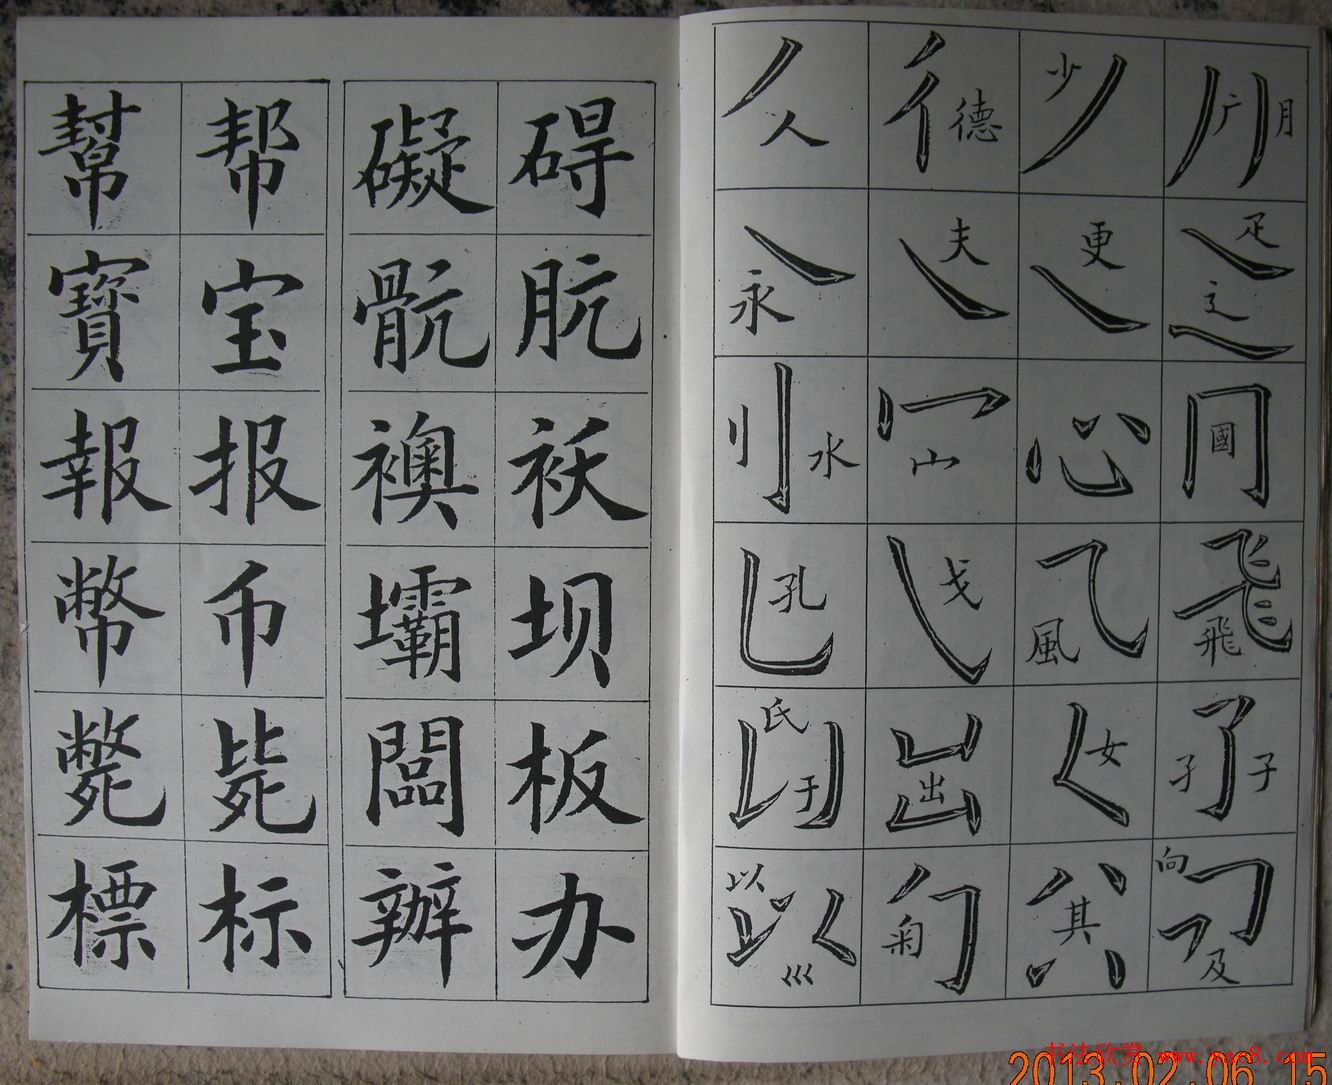 幫 帮 礙 碍
寶 宝 骯 肮
報 报 襖 袄
幣 币 壩 坝
斃 毙 闆 板
標 标 辦 办
人 德 少 广 月
永 夫 更 疋 辶
刂 水 宀 心 國
孔 戈 風 飛
氏 于 出 女 孑 子
以 巛 菊 其 向 及
书法欣赏 www.yac8.com
2013.02.06 15